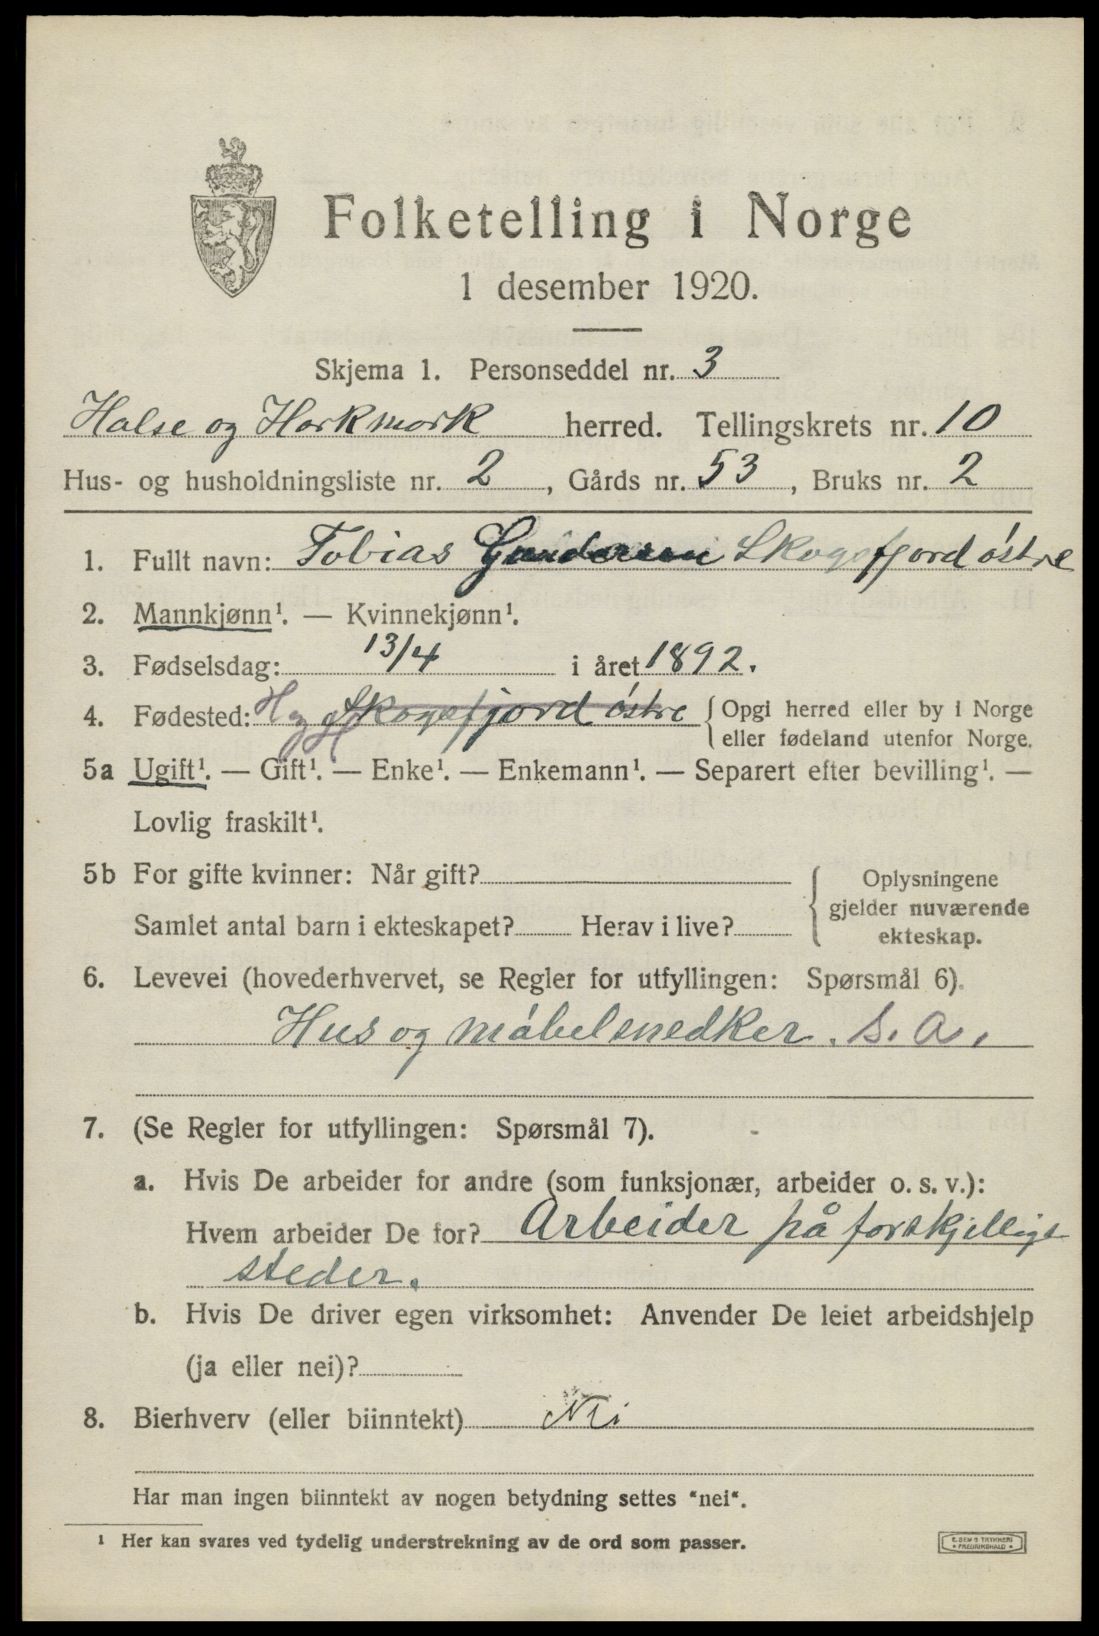 Folketelling i Norge
1 desember 1920.
Skjema 1. Personseddel nr. 3
Halse og Harkmark herred. Tellingskrets nr. 10
Hus- og husholdningsliste nr. 2, Gårds nr. 53, Bruks nr. 2
1. Fullt navn: Tobias Skogsfjord östre
2. Mannkjønn¹. — Kvinnekjønn¹.
3. Fødselsdag: 13/4 i året 1892.
4. Fødested: H og H Skogsfjord östre { Opgi herred eller by i Norge
eller fødeland utenfor Norge.
5a Ugift¹. — Gift¹. — Enke¹. — Enkemann¹. — Separert efter bevilling¹. —
Lovlig fraskilt¹.
5b For gifte kvinner: Når gift? { Oplysningene
gjelder nuværende
Samlet antal barn i ekteskapet? Herav i live?
ekteskap.
6. Levevei (hovederhvervet, se Regler for utfyllingen: Spørsmål 6).
Hus og möbelsnedker. s. a.
7. (Se Regler for utfyllingen: Spørsmål 7).
a. Hvis De arbeider for andre (som funksjonær, arbeider o. s. v.):
Hvem arbeider De for? Arbeider på forskjellige
steder.
b. Hvis De driver egen virksomhet: Anvender De leiet arbeidshjelp
(ja eller nei)?
8. Bierhverv (eller biinntekt) Nei
Har man ingen biinntekt av nogen betydning settes "nei".
¹ Her kan svares ved tydelig understrekning av de ord som passer.